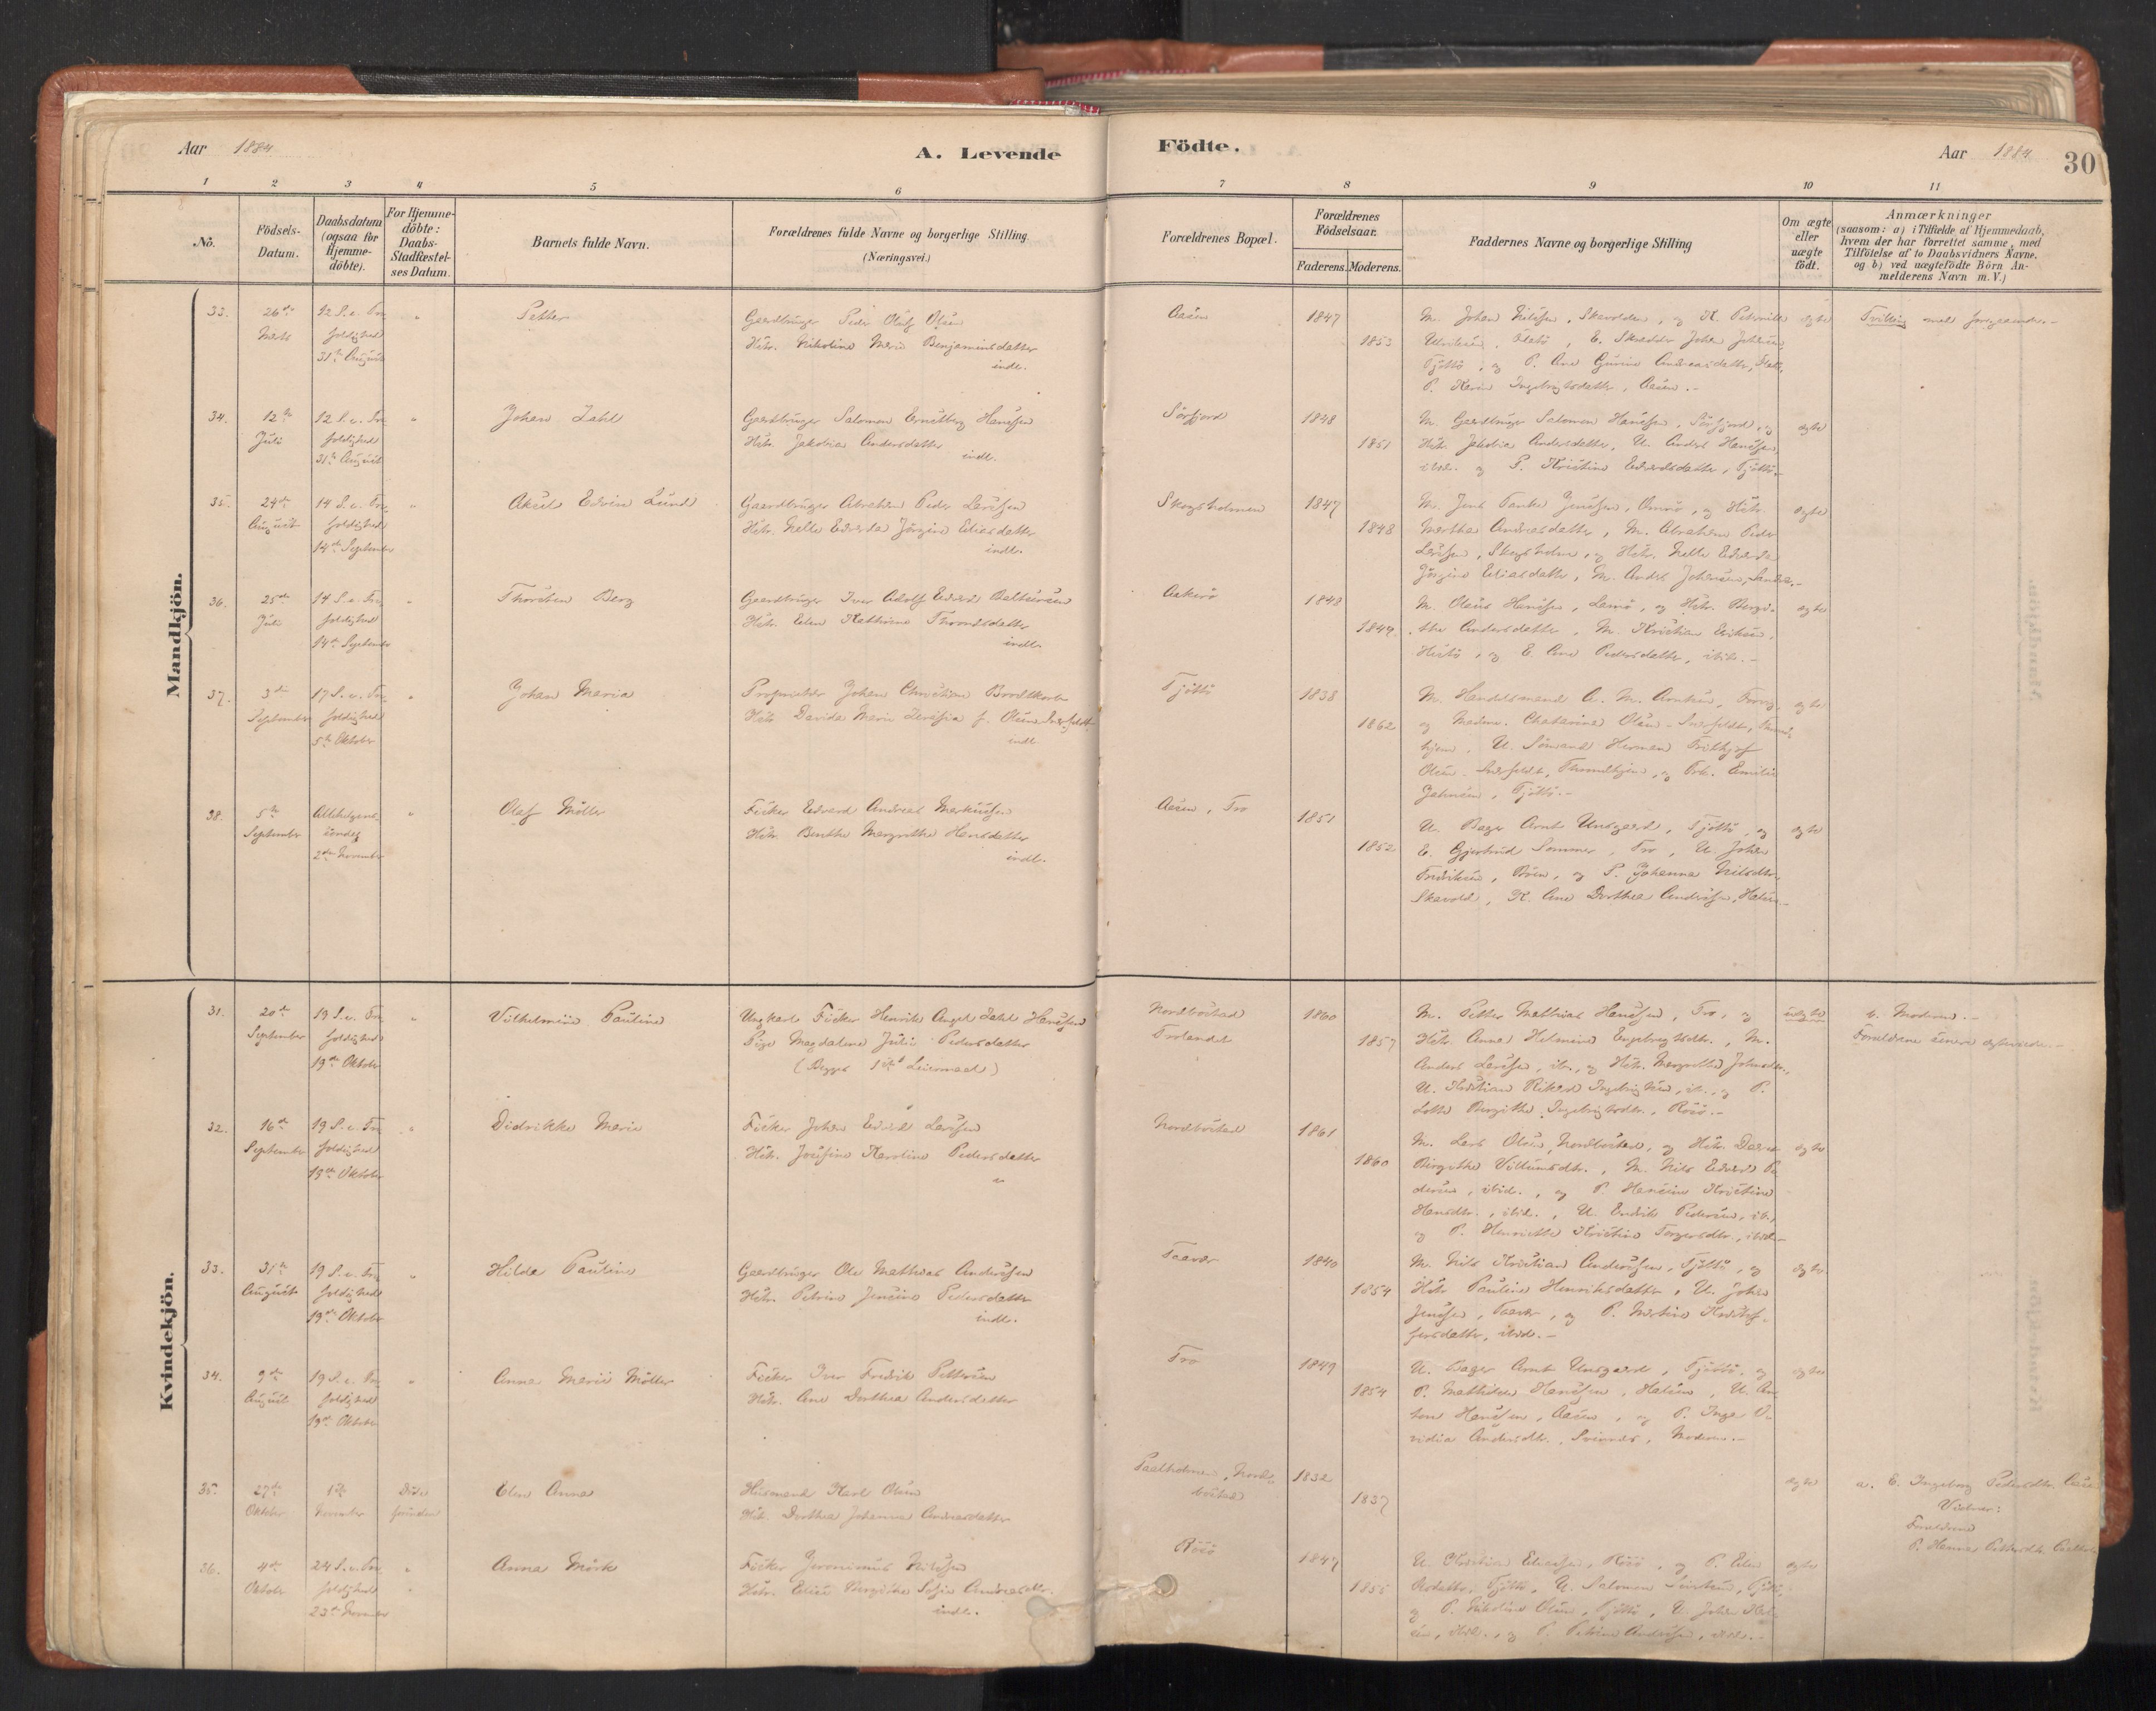 Aar 1884
A. Levende
Födte.
Aar 1884
30
1 2 3 4 5 6 7 8 9 10 11
No.
Födsels-
Datum.
Daabsdatum
(ogsaa for
Hjemme-
döbte).
For Hjemme-
döbte:
Daabs-
Stadfæstel-
ses Datum.
Barnets fulde Navn.
Forældrenes fulde Navne og borgerlige Stilling.
(Næringsvei.)
Forældrenes Bopæl.
Forældrenes
Födselsaar.
Faderens. Moderens.
Faddernes Navne og borgerlige Stilling
Om ægte
eller
uægte
födt.
Anmærkninger
(saasom: a) i Tilfælde af Hjemmedaab,
hvem der har forrettet samme, med
Tilföielse af to Daabsvidners Navne.
og b) ved uægtefödte Börn An-
melderens Navn m. V.)
Mandkjön.
33.
26de
Marts
12 S. e. Tre
foldighed
31te August
Petter
Gaardbruger Peder Olaf Olsen
Hstr. Nikoline Marie Benjaminsdatter
indl.
Aasen
1847
1853
M. Johan Nilsen, Skavolden, og K. Peternille
Tjöttö, og P. Ane Gurine Andreasdatter,
P. Karen Ingebrigtsdatter, Aasen.-
ægte
Tvilling med foregaaende.-
34.
12te
Juli
12 S. e. Tre
foldighed
31te August
Johan Zahl
Gaardbruger Salomon Ernstberg Hansen
Hstr. Jakobia Andersdatter
indl.
Sörfjord
1848
1851
M. Gaardbruger Salomon Hansen, Sörfjord, og
Hstr. Jakobia Andersdatter, U. Anders Hansen,
ibid. og P. Kristine Edvardsdatter, Tjöttö.-
ægte
35.
24de
August
14 S. e. Tre
foldighed
14de September
Aksel Edvin Lund
Gaardbruger Abraham Peder Larsen
Hstr. Nelle Edvarda Jörgine Eliasdatter
indl.
Skogsholmen
1847
1848
M. Jens Tanke Jensen, Omnö, og Hstr.
Martha Andreasdatter, M. Abraham Peder
Larsen, Skogsholm, og Hstr. Nelle Edvarda
Jörgine Eliasdatter, M. Anders Johansen,
ægte
36.
25de
Juli
14 S. e. Tre
foldighed
14de September
Thorsten Berg
Gaardbruger Iver Adolf Edvard Baltsersen
Hstr. Elen Kathrine Thomasdatter
indl.
Aakerö
1848
M. Olaus Hansen, Lamö, og Hstr. Bergi-
the Andersdatter, M. Kristian Eriksen,
og E. Ane Pedersdatter, ibid.-
ægte
37.
3die
September
17 S. e. Tre
foldighed
5te Oktober
Johan Maria
Proprietær Johan Christian Brodtkorb
Hstr. Davida Marie Teresia f. Olsen
indl.
Tjöttö
1838
1862
M. Handelsmand A. M. Arntsen, Forvig,
og Madme. Chatarina Olsen-
hjem, U. Sömand Herman Frithjof
Olsen, Throndhjem, og Frk. Emilie
Johnsen, Tjöttö.-
ægte
38.
5te
September
Allehelgens
söndag
2den November
Olaf Möller
Fisker Edvard Andreas Markussen
Hstr. Benthe Margrethe Hansdatter
indl.
Aasen, Tro
1851
1852
U. Bager Arnt Unsgaard, Tjöttö, og
E. Gjertrud Sommer, Tro, U. Johan
Fredriksen, og P. Johanna Nilsdtr.
Skavold, K. Ane Dorthea Andersen,
ægte
Kvindekjön.
31.
20de
September
19 S. e. Tre
foldighed
19de Oktober
Vilhelmine Pauline
Ungkarl Fisker Henrik Angel Zahl Hansen
Pige Magdalene Julie Pedersdatter
(Begges 1ste Leiermaal)
Nordbostad
Trolandet
1860
1857
M. Petter Mathias Hansen, Tro, og
Hstr. Anna Helmine Engebrigtsdtr., M.
Anders Larsen, ib., og Hstr. Margrethe
U. Kristian Rikard Ingebrigtsen, ib., og P.
Lotte Bergithe Ingebrigtsdtr., Rösö.-
uægte
b. Moderen.-
Forældrene senere ægteviede.-
32.
16de
September
19 S. e. Tre
foldighed
19de Oktober
Didrikke Marie
Fisker Johan Edvard Larsen
Hstr. Josefine Karoline Pedersdatter
Nordbostad
1861
1860
M. Lars Olsen, Nordbostad, og Hstr.
Birgithe Villumsdtr., M. Nils Edvard Pe-
dersen, ibid., og P. Hansine Kristine
Hansdtr., ibid., U. Endrik Pedersen, ib.,
og P. Henriette Kristine Torgersdtr., ibid.-
ægte
33.
31te
August
19 S. e. Tre
foldighed
19de Oktober
Hilda Pauline
Gaardbruger Ole Mathias Andersen
Hstr. Petrine Jensine Pedersdatter
indl.
Taavær
1840
1854
M. Nils Kristian Andersen, Tjöttö, og
Hstr. Pauline Henriksdatter, U. Johan
Jensen, Taavær, og P. Martine Kristof-
fersdatter, ibid.-
ægte
34.
9de
August
19 S. e. Tre
foldighed
19de Oktober
Anna Marie Möller
Fisker Iver Fredrik Pettersen
Hstr. Ane Dorthea Andersdatter
Tro
1849
1854
U. Bager Arnt Unsgaard, Tjöttö, og
P. Mathilde Hansen, U. An-
ton Hansen, Aasen, og P. Inga O-
vidia Andersdtr., Moderen.-
ægte
35.
27de
Oktober
1ste
November
Död
forinden
Elen Anna
Husmand Karl Olsen
Hstr. Dorthea Johanna Andreasdatter
Paalholmen, Nord-
bostad
1832
1837
ægte
a. E. Ingeborg Pedersdtr.
Vidner:
Forældrene
P. Hanna Pettersdtr.
36.
4de
Oktober
24 S. e. Tre
foldighed
23de November
Anna Mörk
Fisker Jeronimus Nilsen
Hstr. Elise Bergithe Sofie Andreasdtr.
indl.
Rösö
1847
U. Kristian Eliassen, Rösö, og P. Elen
Tjöttö, U. Salomon
og P. Nikoline Olsen, Tjöttö, U. Johan
sen, ibid., og P. Petrine Andersen, ibid.-
ægte